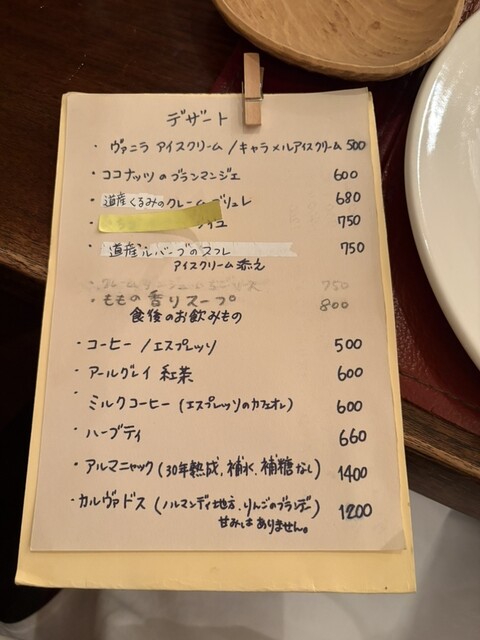 デザート
・ヴァニラ アイスクリーム / キャラメルアイスクリーム 500
・ココナッツのブランマンジェ 600
・道産くるみのクレームブリュレ 680
・ 750
・道産ルバーブのスフレ 750
アイスクリーム添え
750
・ももの香りスープ 800
食後のお飲みもの
・コーヒー / エスプレッソ 500
・アールグレイ 紅茶 600
・ミルクコーヒー (エスプレッソのカフェオレ) 600
・ハーブティ 660
・アルマニャック (30年熟成, 補水, 補糖なし) 1400
・カルヴァドス (ノルマンディ地方, りんごのブランデー) 1200
甘みはありません。